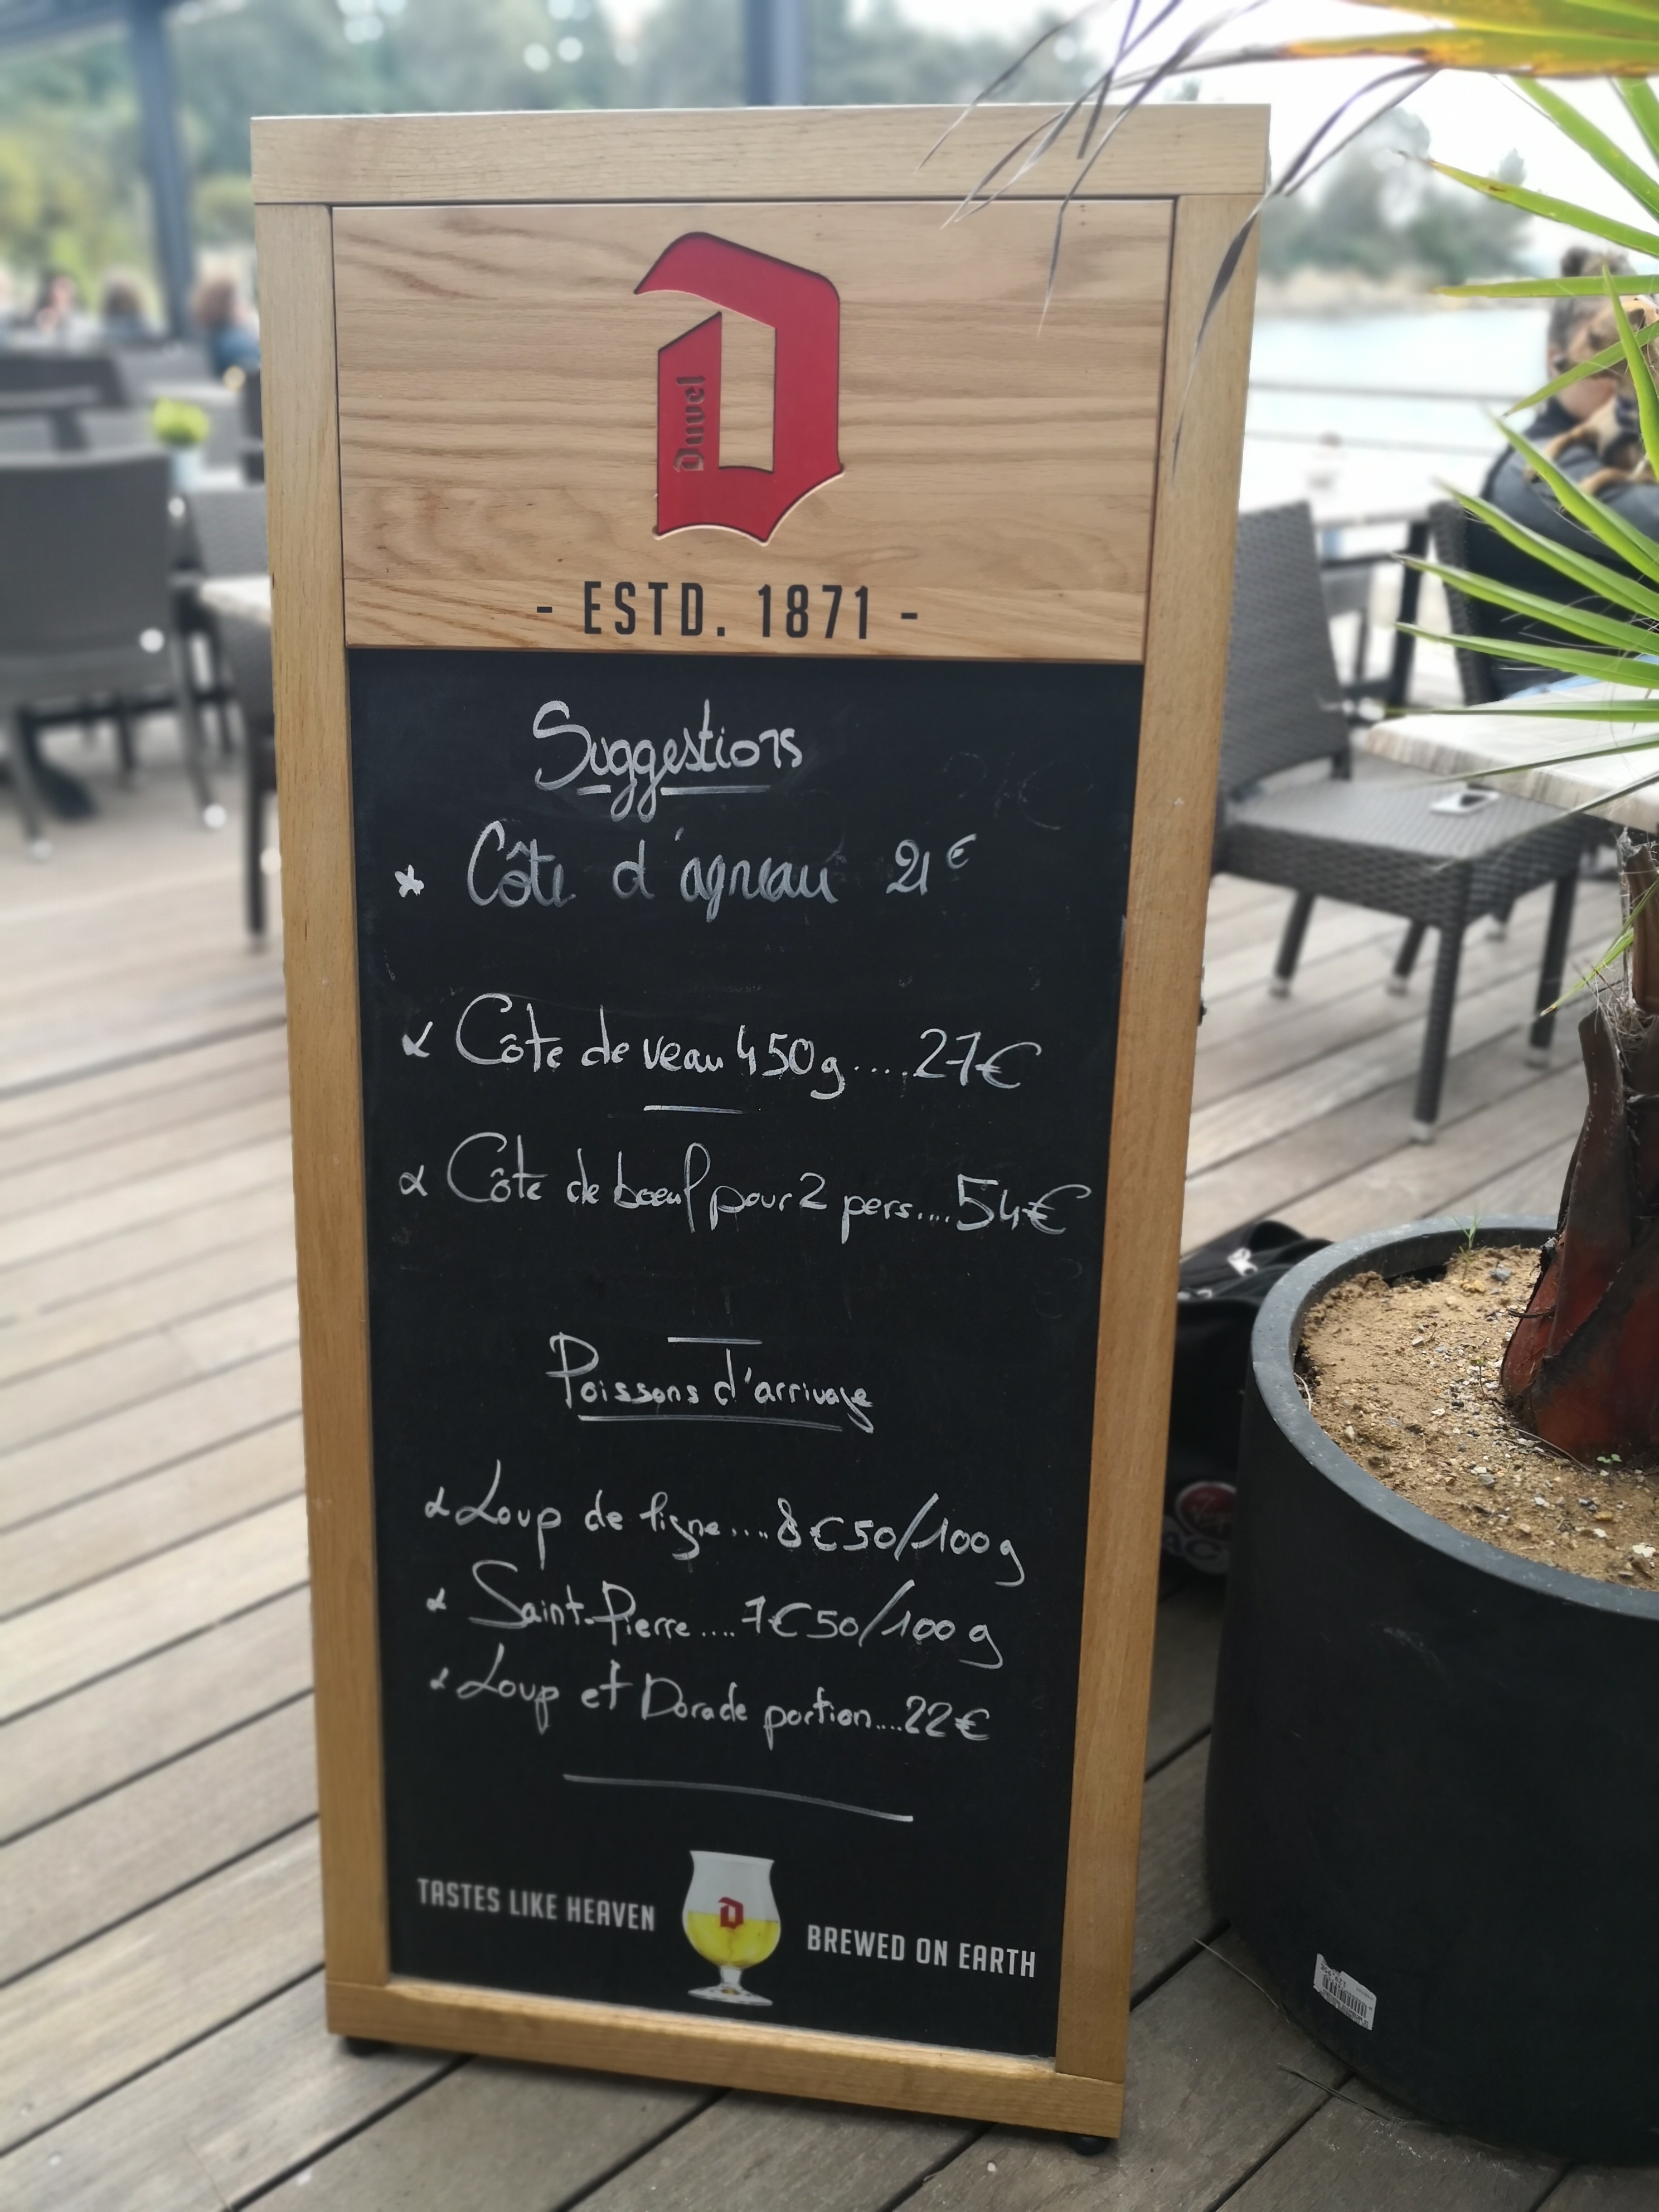 Duvel
- ESTD. 1871 -
Suggestions
* Côte d'agneau 21€
Côte de veau 450g....27€
Côte de boeuf pour 2 pers....54€
Poissons d'arrivage
Loup de ligne....8€50/100g
Saint-Pierre....7€50/100g
Loup et Dorade portion....22€
TASTES LIKE HEAVEN
BREWED ON EARTH